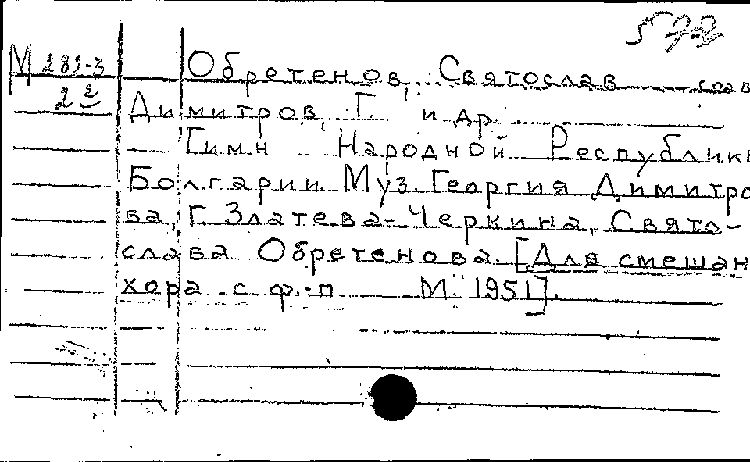 М 281-3 Обретенов, Святослав
Димитров, Г. и др.
Гимн Народной Республики
Болгарии. Муз. Георгия Димитро
ва, Г. Златева-Черкина, Свято-
слава Обретенова. [Для смешан
хора с ф.-п. М. 1951].